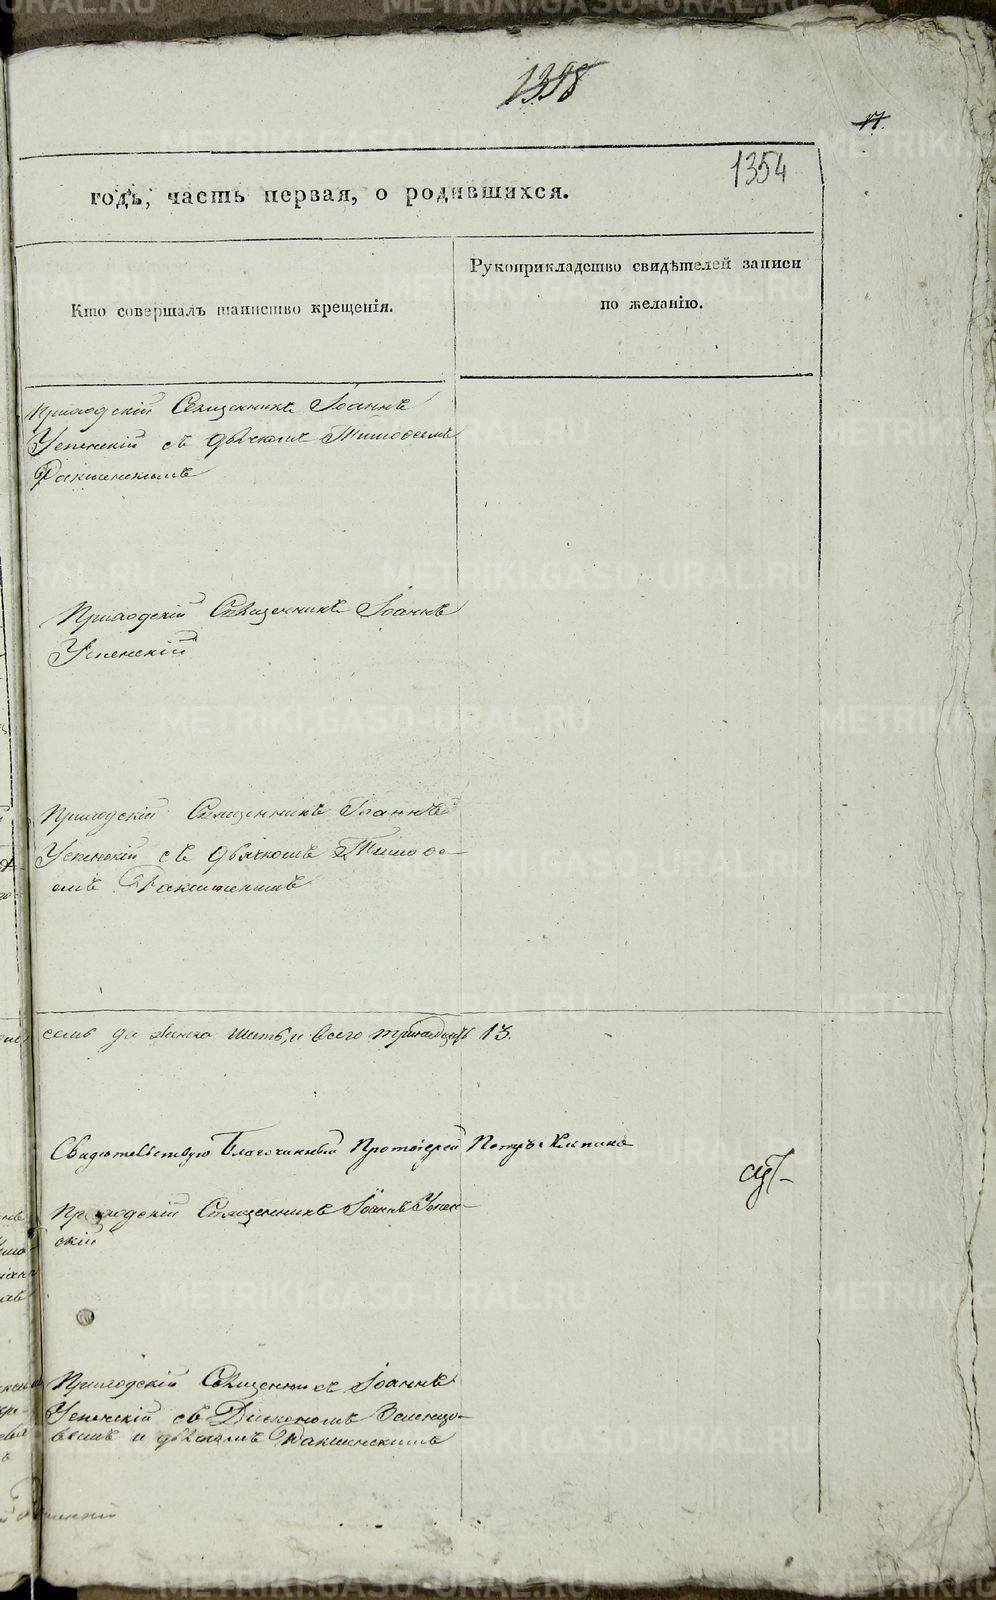 1398
17.
1354
годъ, часть первая, о родившихся.
Кто совершалъ таинство крещенія.
Рукоприкладство свидѣтелей записи
по желанію.
Приходскій Священникъ Іоаннъ
Успенскій съ дьячкомъ Тимофеемъ
Приходскій Священникъ Іоаннъ
Успенскій
Приходскій Священникъ Іоаннъ
Успенскій съ дьячкомъ Тимофе-
емъ
семь да женска шесть, и всего тринадцать 13.
Свидетельствую Благочинный Протоіерей Петръ
Приходскій Священникъ Іоаннъ Успен-
скій
Приходскій Священникъ Іоаннъ
Успенскій съ Діакономъ
и дьячкомъ
METRIKI.GASO-URAL.RU